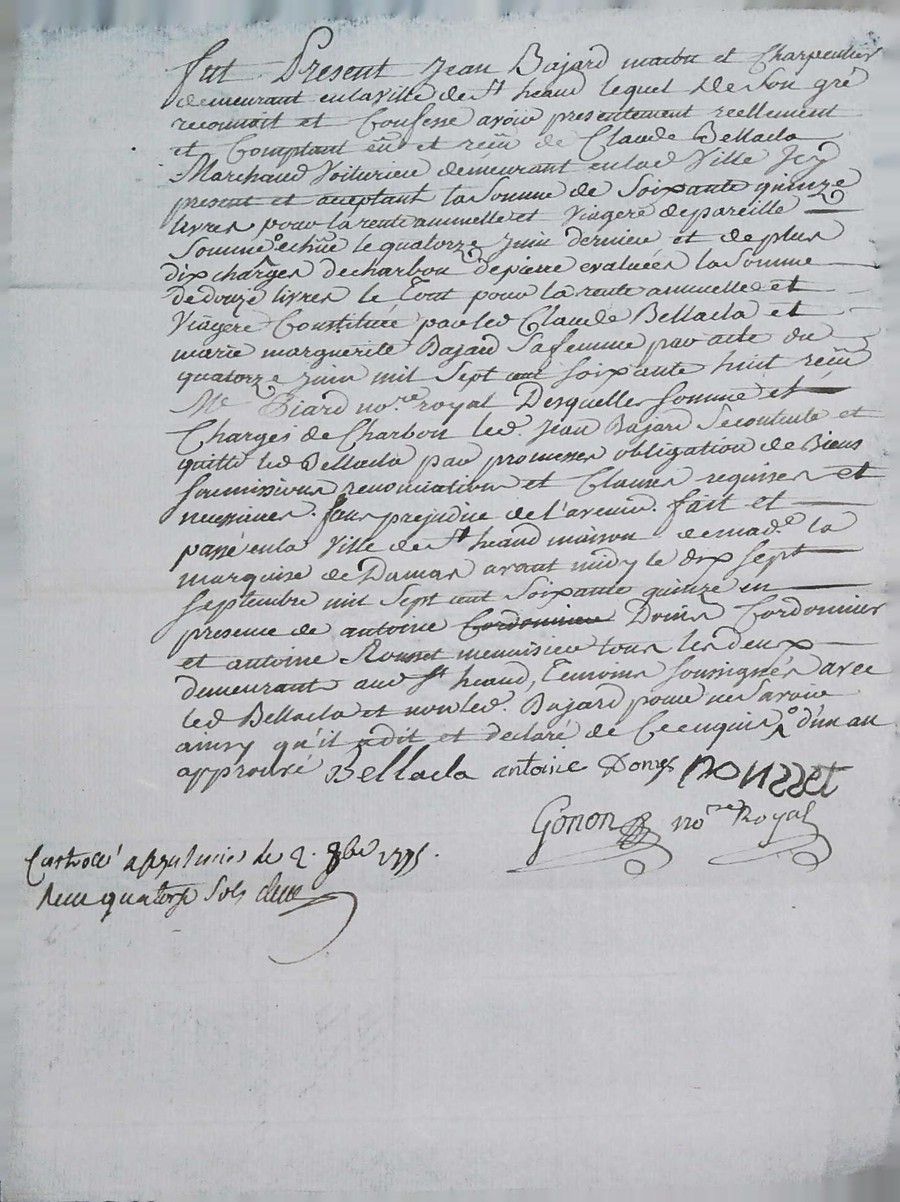 fut Present Jean Bajard maitre Charpentier
demeurant enlaville de St heand lequel de Son gré
reconnoit et Confesse avoir presentement reellement
et Comptant eu et reçu de Claude Bellacla
Marchand Voiturier demeurant enlad Ville Icy
present et aceptant la Somme de Soixante quinze
livres pour la rente annuelle et Viagere depareille
Somme echue le quatorze Juin dernier et de plus
dix charges decharbon depierre evaluées la Somme
dedouze livres le Tout pour la rente annuelle et
Viagere Constituée par led Claude Bellacla et
marie marguerite Bajard Safemme par acte du
quatorze Juin mil Sept cent Soixante huit reçu
Me nore royal Desquelles Somme et
Charges de Charbon led. Jean Bajard Secontente et
quitte led Bellacla par promesses obligation de Biens
Soumissions renonciations et Clauses requises et
necessaires. Sans prejudice de l'avenir. fait et
passé enla Ville de St heand maison demade la
marquise de Damas avant midy le dix Sept
Septembre mil Sept cent Soixante quinze en
presence de antoine Cordonnier Domes Cordonnier
et antoine Rousset menuisier tous les deux
demeurant aud St heand, Temoins Soussignés avec
led Bellacla et non led. Bajard pour ne Savoir
ainsy qu'il adit et declaré de Ce enquis ° d'un an
approuvé Bellacla antoine Domes ROUSSET
Gonon nore Royal
Controlé a le 2. 8bre 1775.
Reçu quatorze Sols